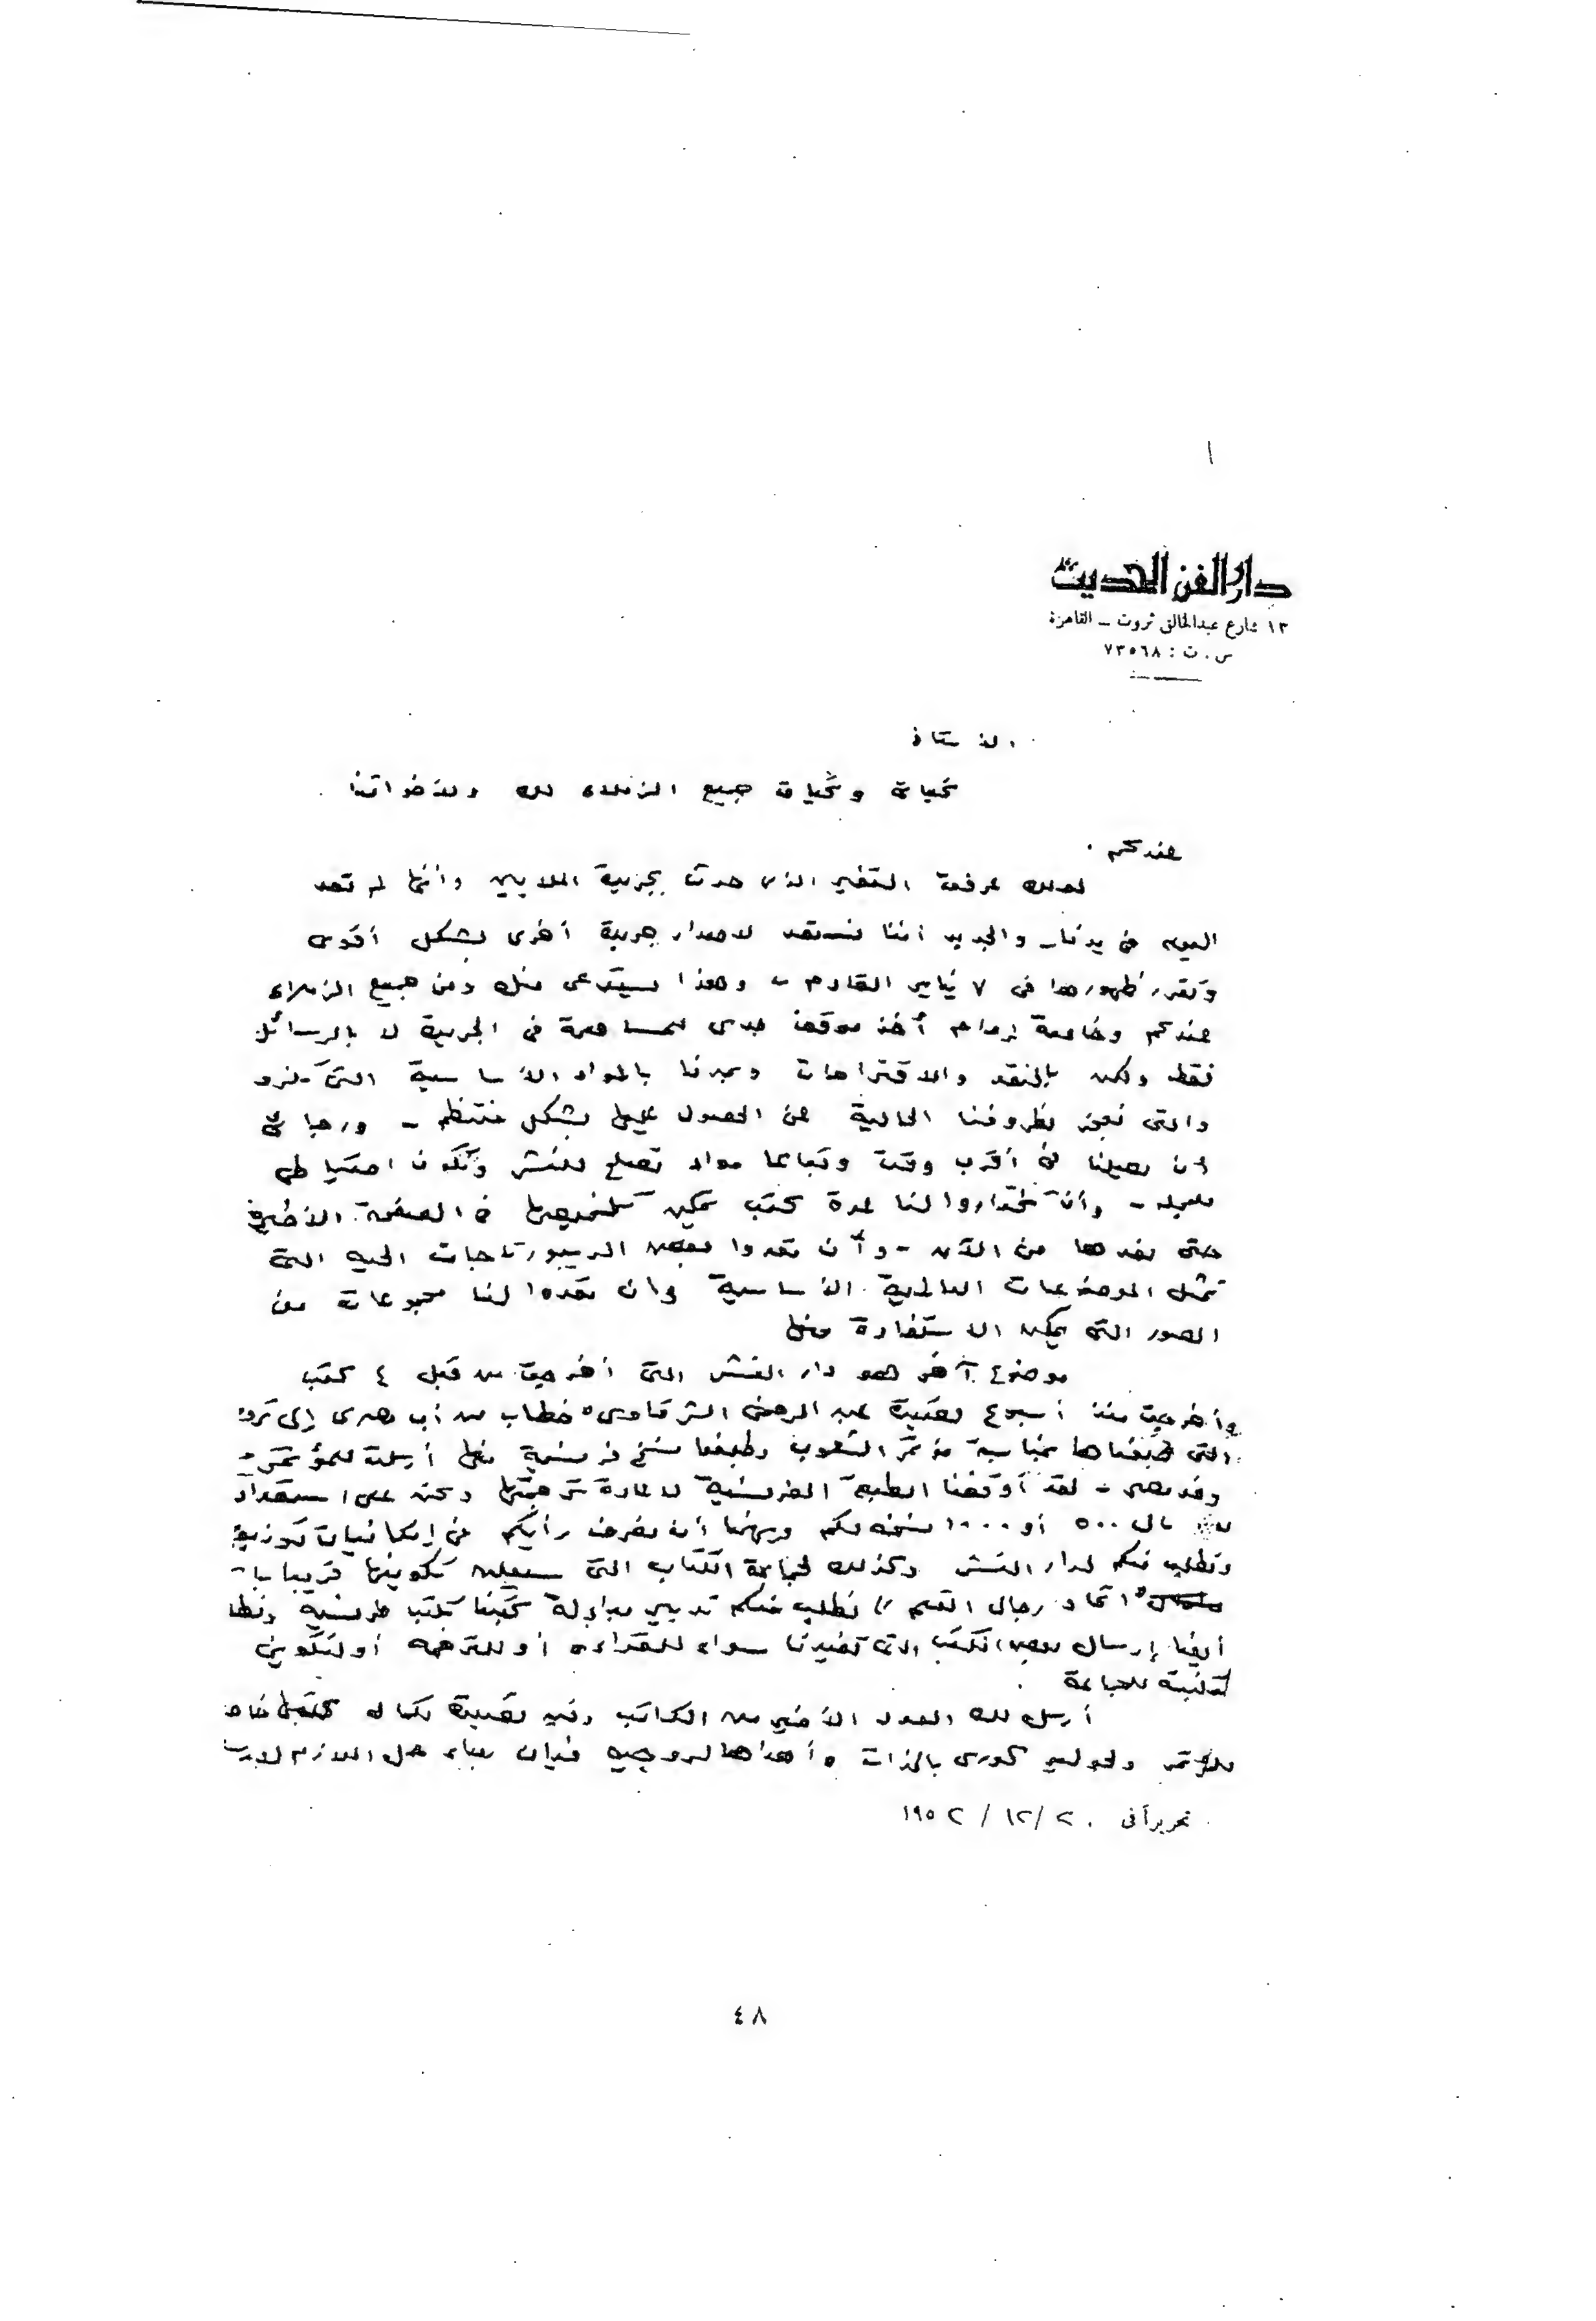 ١
دار الفن الحديث
١٣ شارع عبدالخالق ثروت – القاهرة
س . ت : ٧٣٥٦٨
الأستاذ
تحياتى وتحيات جميع الزملاء لك ولأخواتنا
عندكم .
لعلك عرفت التغير الذى حدث بجريدة الملايين وأنها لم تعد
اليوم فى يدنا - والجديد أننا نستعد لاصدار جريدة أخرى بشكل أقوى
وتقرر ظهورها فى ٧ يناير القادم - وهذا يستدعى منك ومن جميع الزملاء
عندكم وخاصة أخذ موقف جدى للمساهمة فى الجريدة لا بالرسائل
فقط ولكن بالنقد والاقتراحات ومدنا بالمواد الأساسية التى
والتى نعجز بظروفنا الحالية عن الحصول عليها بشكل منتظم - ورجائى
أن يصلنا فى أقرب وقت وتباعا مواد تصلح للنشر وتكون احتياطى
للعمل - وأن تختاروا لنا عدة كتب يمكن تلخيصها فى الصفحة الأخيرة
حتى نعدها من الآن - وأن تعدوا بعض الريبورتاجات الحية التى
تمثل الموضوعات العالمية الأساسية وان تعدوا لنا مجموعات من
الصور التى يمكن الاستفادة منها
موضوع آخر هو دار النشر التى أخرجت من قبل ٤ كتب
وأخرجت منذ أسبوع قصيدة عبد الرحمن الشرقاوى " خطاب من أب مصرى إلى ترومان
التى طبعناها بمناسبة مؤتمر الشعوب وطبعنا نسخ فرنسية منها أرسلت للمؤتمر
وفد مصر - لقد أوقفنا الطبعة الفرنسية لاعادة ترجمتها ونحن على استعداد
٥٠٠ أو ١٠٠٠ نسخه لكم ويهمنا أن نعرف رأيكم فى إمكانيات توزيع
ونطلب منكم لدار النشر وكذلك لجماعة الكتاب التى سيعلن تكوينها قريبا باسم
" اتحاد رجال القلم " نطلب منكم تدبير مبادلة كتبنا بكتب فرنسية ونطلب
أيضا إرسال بعض الكتب التى تفيدنا سواء للقراءة أو للترجمة أو لتكوين
مكتبة للجماعة .
أرسل لك العدد الأخير من الكاتب وفيه قصيدة لكمال كتبها خاصة
للمؤتمر ولجوليو كورى بالذات وأهداها
تحريراً فى ٢٠ / ١٢ / ١٩٥٢
٤٨